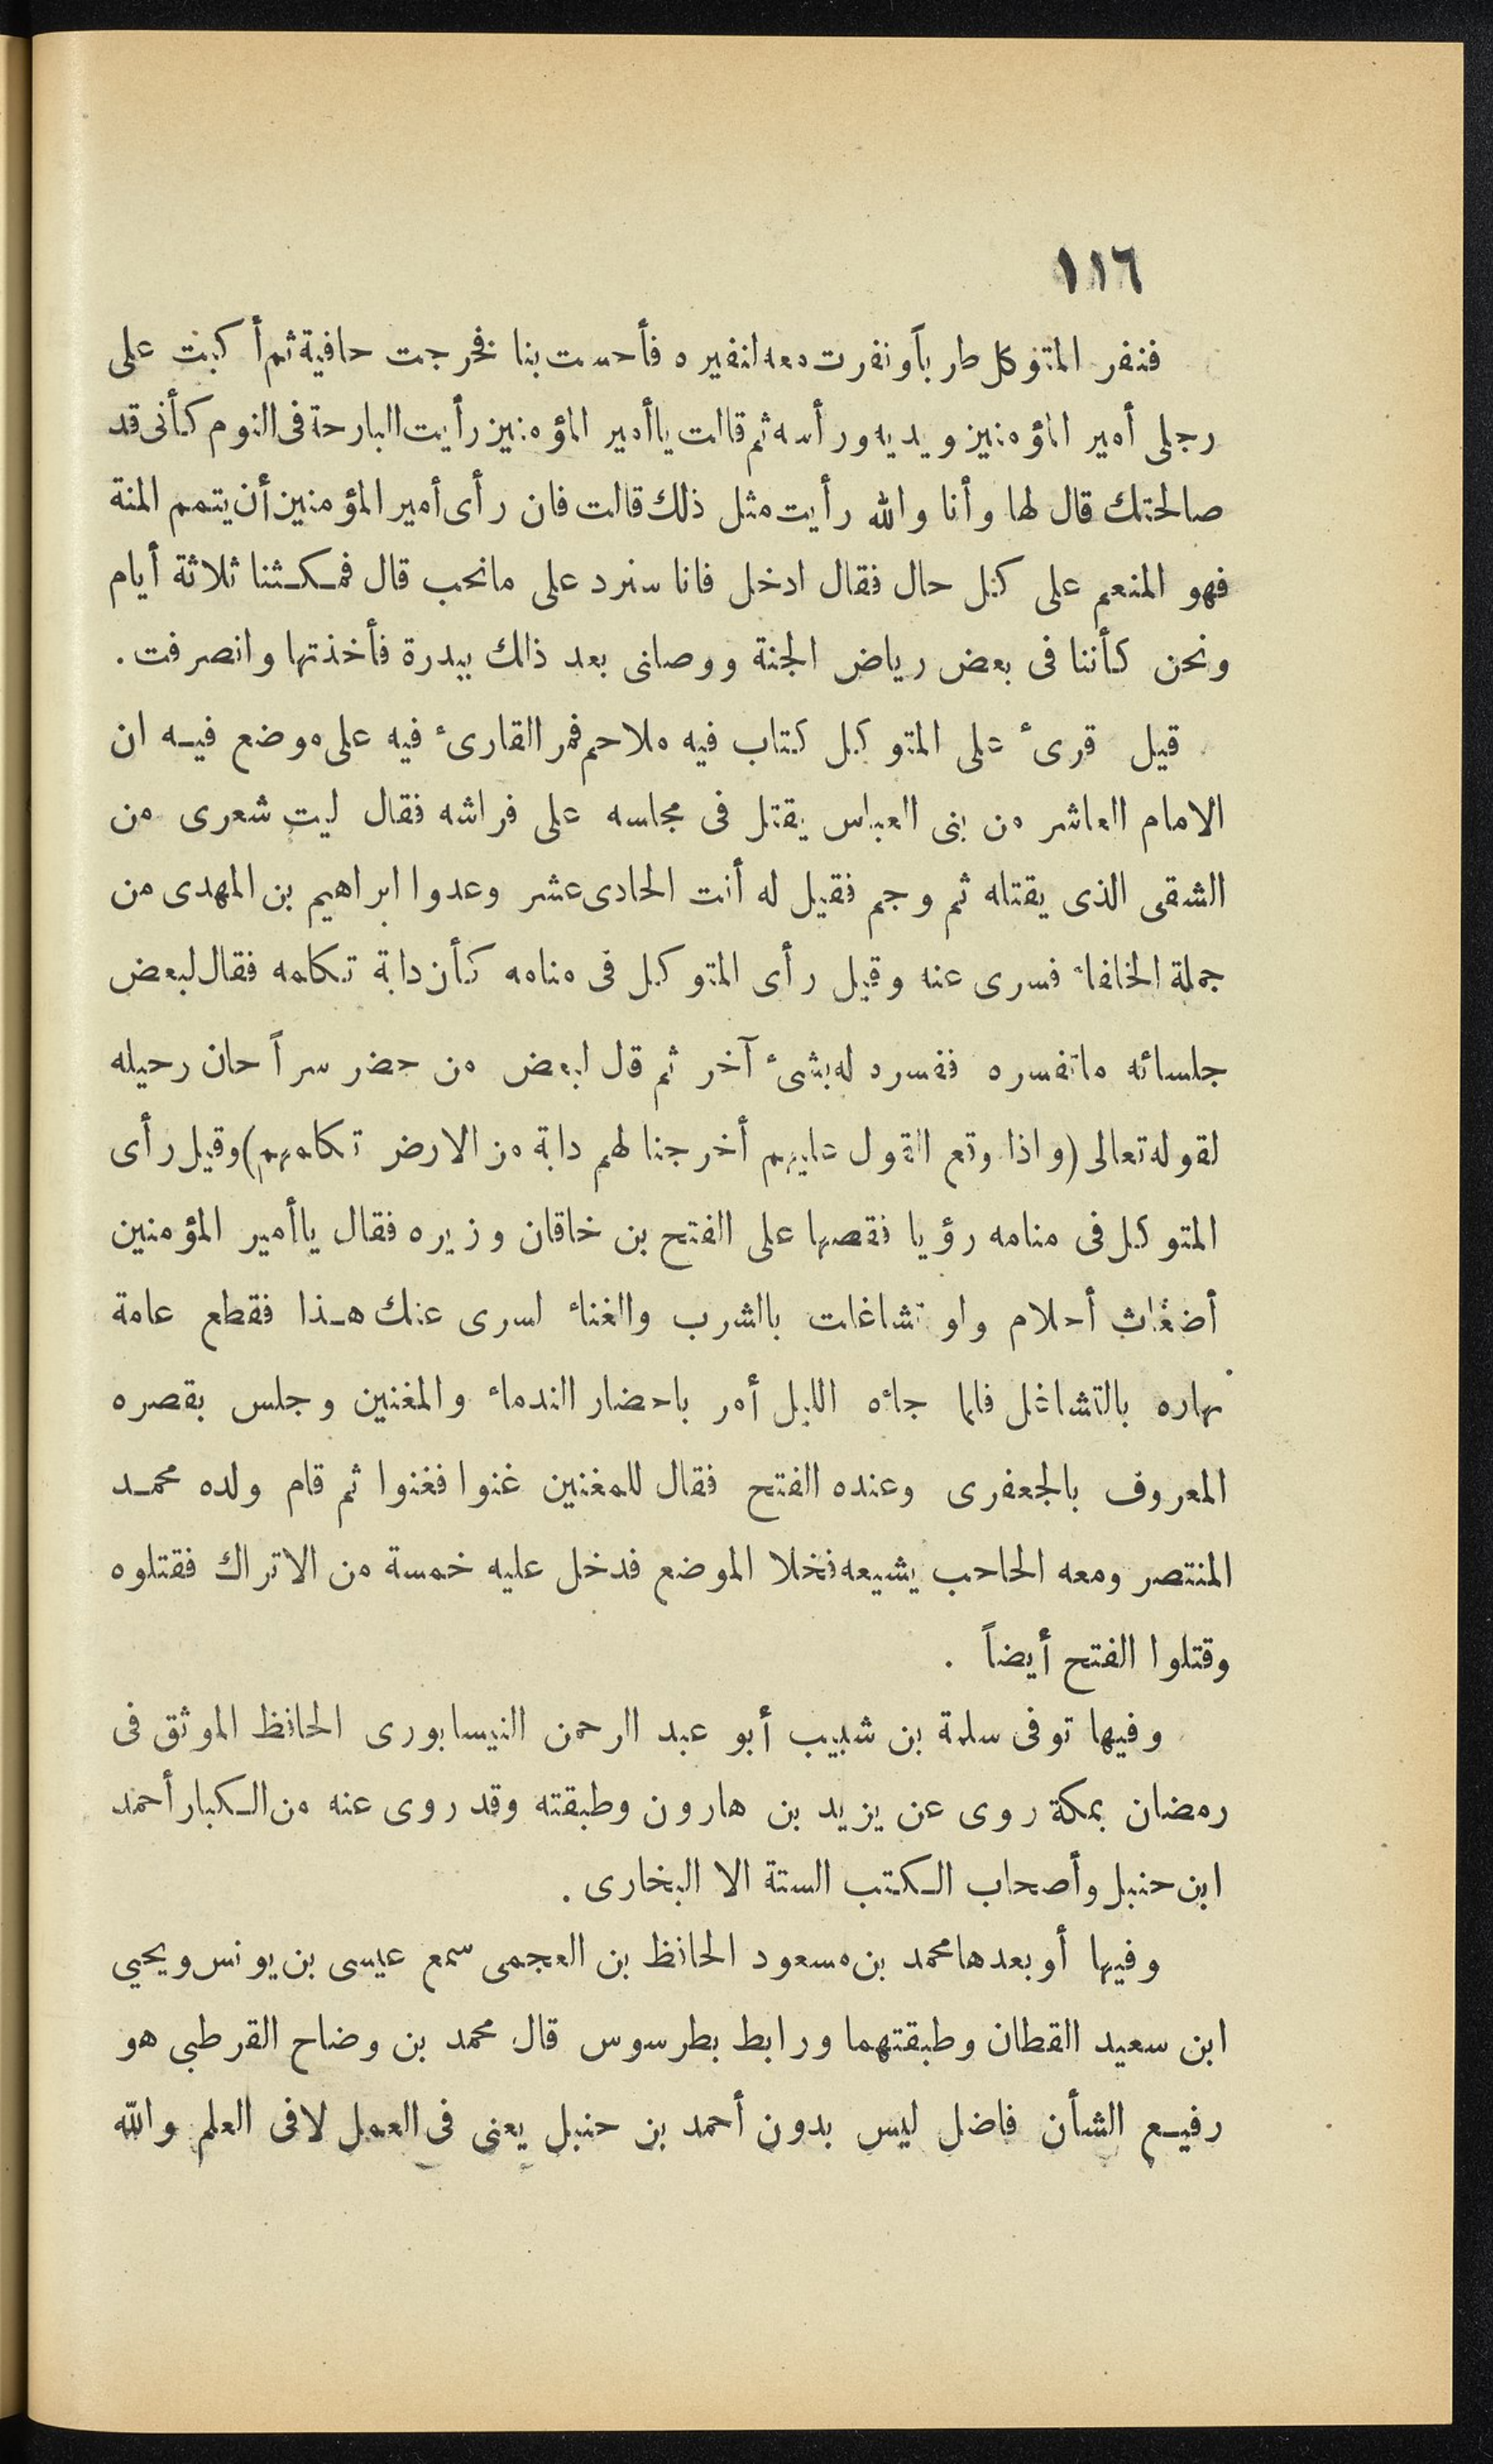 ١١٦
فنفر المتوكل طرباً ونفرت معه لنفيره فأحست بنا فخرجت حافية ثم أكبت على
رجلى أمير المؤمنين ويديه ورأسه ثم قالت ياأمير المؤمنين رأيت البارحة فى النوم كأنى قد
صالحتك قال لها وأنا والله رأيت مثل ذلك قالت فان رأى أمير المؤمنين أن يتمم المنة
فهو المنعم على كل حال فقال ادخل فانا سنرد على مانحب قال فمكثنا ثلاثة أيام
ونحن كأننا فى بعض رياض الجنة ووصلنى بعد ذالك ببدرة فأخذتها وانصرفت .
قيل قرىء على المتوكل كتاب فيه ملاحم فمر القارىء فيه على موضع فيه ان
الامام العاشر من بنى العباس يقتل فى مجلسه على فراشه فقال ليت شعرى من
الشقى الذى يقتله ثم وجم فقيل له أنت الحادى عشر وعدوا ابراهيم بن المهدى من
جملة الخلفاء فسرى عنه وقيل رأى المتوكل فى منامه كأن دابة تكلمه فقال لبعض
جلسائه ماتفسره ففسره له بشىء آخر ثم قل لبعض من حضر سراً حان رحيله
لقوله تعالى (واذا وقع القول عليهم أخرجنا لهم دابة من الارض تكلمهم) وقيل رأى
المتوكل فى منامه رؤيا فقصها على الفتح بن خاقان وزيره فقال ياأمير المؤمنين
أضغاث أحلام ولو تشاغلت بالشرب والغناء لسرى عنك هذا فقطع عامة
نهاره بالتشاغل فلما جاءه الليل أمر باحضار الندماء والمغنين وجلس بقصره
المعروف بالجعفرى وعنده الفتح فقال للمغنين غنوا فغنوا ثم قام ولده محمد
المنتصر ومعه الحاحب يشيعه فخلا الموضع فدخل عليه خمسة من الاتراك فقتلوه
وقتلوا الفتح أيضاً .
وفيها توفى سلمة بن شبيب أبو عبد الرحمن النيسابورى الحافظ الموثق فى
رمضان بمكة روى عن يزيد بن هارون وطبقته وقد روى عنه من الكبار أحمد
ابن حنبل وأصحاب الكتب الستة الا البخارى .
وفيها أو بعدها محمد بن مسعود الحافظ بن العجمى سمع عيسى بن يونس ويحيي
ابن سعيد القطان وطبقتهما ورابط بطرسوس قال محمد بن وضاح القرطبى هو
رفيع الشأن فاضل ليس بدون أحمد بن حنبل يعنى فى العمل لافى العلم والله